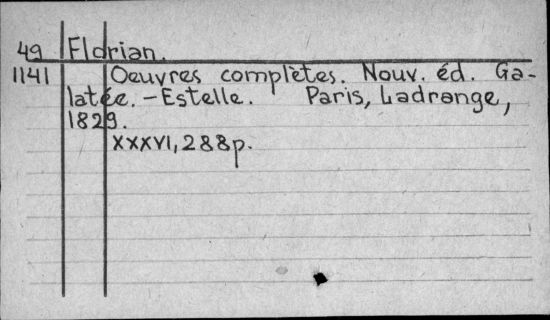 49 Florian.
1141 Oeuvres complètes. Nouv. éd. Ga-
latée. - Estelle. Paris, Ladrange,
1829.
XXXVI, 288p.